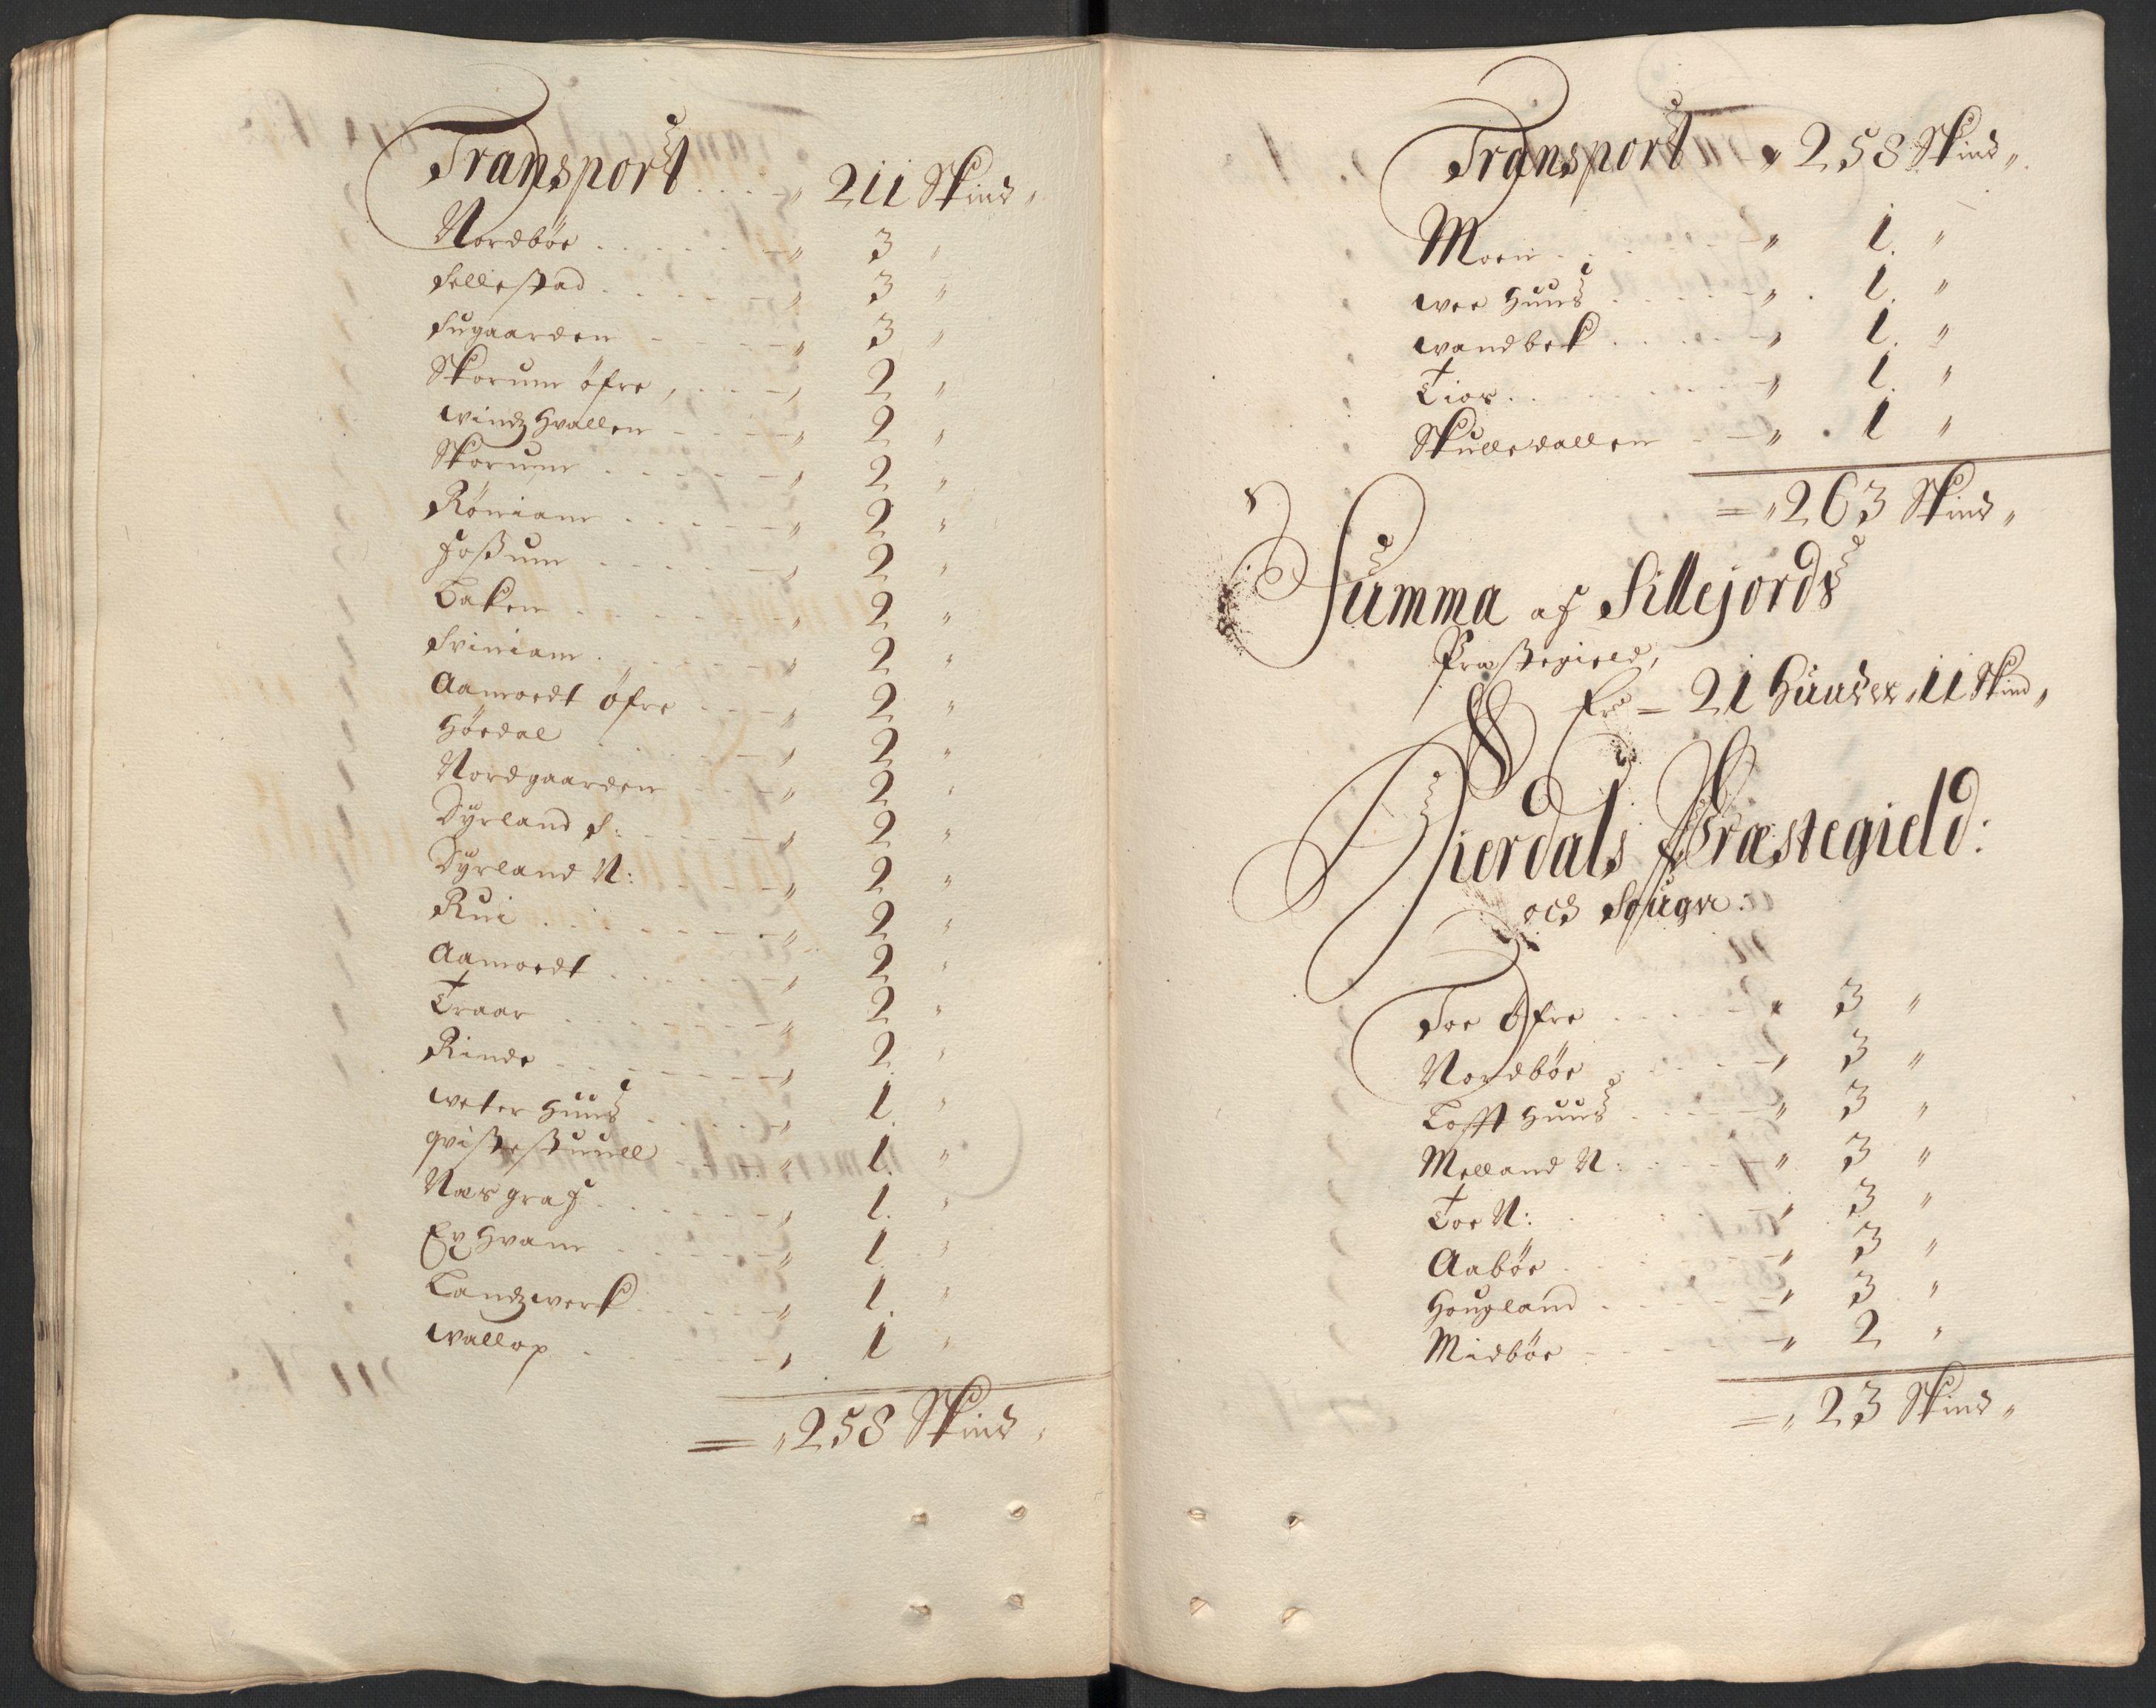 Transport . . . - „ 211 Skind „
Nordböe . . . . . - „ 3 „
Sellestad . . . . . „ 3 „
Sugaarden - - - - „ 3 „
Skorum öfre , . . . - , 2 „
Windz Hvallen - - - - „ 2 „
Skorum . . . . . - , 2 „
Röniam . . . . - - „ 2 „
Foßum . . . . . - , 2 „
Baken . . . . . . - „ 2 „
Sviniam . . . . . - „ 2 „
Aamoedt öfre . . . „ 2 „
Höedal . . . . . - , 2 „
Nordgaarden - - - „ 2 „
Dyrland S: - - - - , 2 „
Dyrland N: - - - - „ 2 „
Rui . . . . - - . „ 2 „
Aamoedt . . . . . - , 2 „
Traar . . . . . . „ 2 „
Rinde - . - - - - , 2 „
Weter Huus . . . . - „ 1. „
qvistestuuell - - - . „ 1. „
Næs graf . . . . . - , 1. „
Ex Hvam - . . . . - „ 1 „
Landzwerk . . . . - „ 1. „
Wallop . . . . - - , 1 „
= „ 258 Skind „
Transport „ 258 Skind „
Moen . . . . . - „ 1. „
Wee Huus . . . . - „ . 1. „
Wandbek . . . . . - , 1. „
Tior . . . . . . - „ 1. „
Skulledallen - - „ . 1 „
= „ 263 Skind „
Summa af Sillejords
Præstegield,
Er = 21 Hunder 11 Skind „
Hierdals Præstegield:
och Sougn:
Soe Öfre . . . . - „ 3 „
Nordböe . . . . - , 3 „
Lofft Huus . . . . - „ 3 „
Melland N: - - - - „ 3 „
Toe N: . . . . „ 3 „
Aaböe . . . . - „ 3 „
Hougland . . - - - „ 3 „
Midböe - - - - - „ 2 „
= „ 23 Skind „